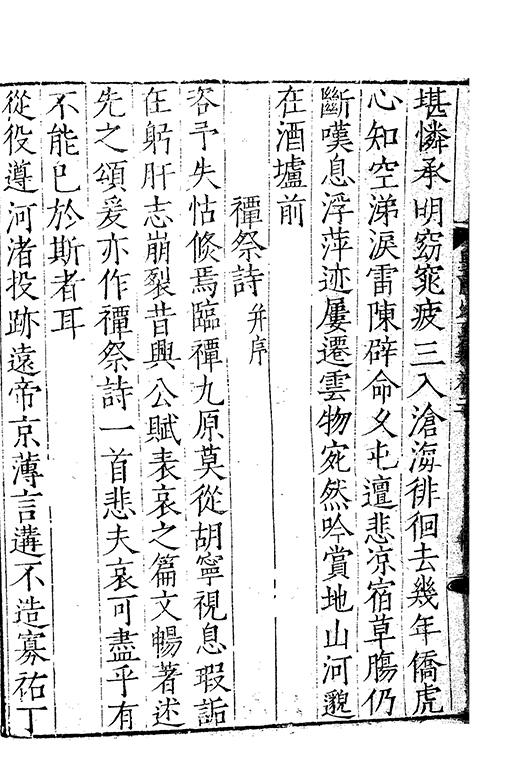 堪憐承明窈窕疲三入滄海徘徊去幾年僑虎
心知空涕淚雷陳辟命久屯邅悲凉宿草膓仍
斷嘆息浮萍迹屢遷雲物宛然吟賞地山河邈
在酒壚前
禫祭詩并序
咨予失怙倐焉臨禫九原莫從胡寧視息瑕詬
在躬肝志崩裂昔興公賦表哀之篇文暢著述
先之頌爰亦作禫祭詩一首悲夫哀可盡乎有
不能已於斯者耳
從役遵河渚投跡遠帝京薄言遘不造寡祐丁